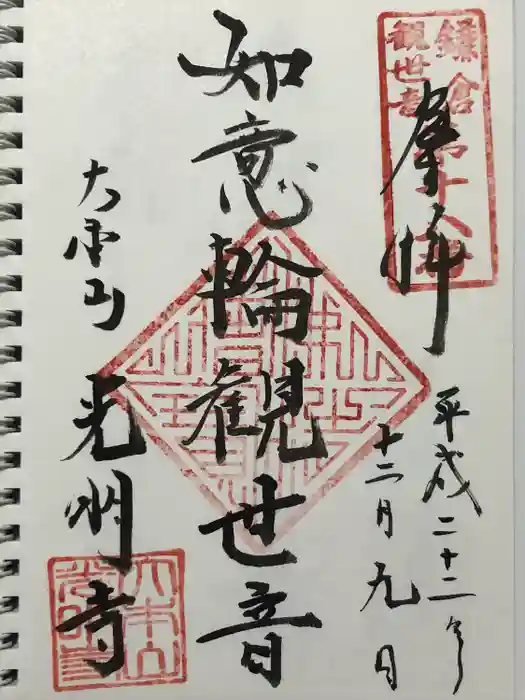 奉拝
平成二十二年
十二月九日
如意輪観世音
天照山
光明寺
鎌倉
観世音
第十八番